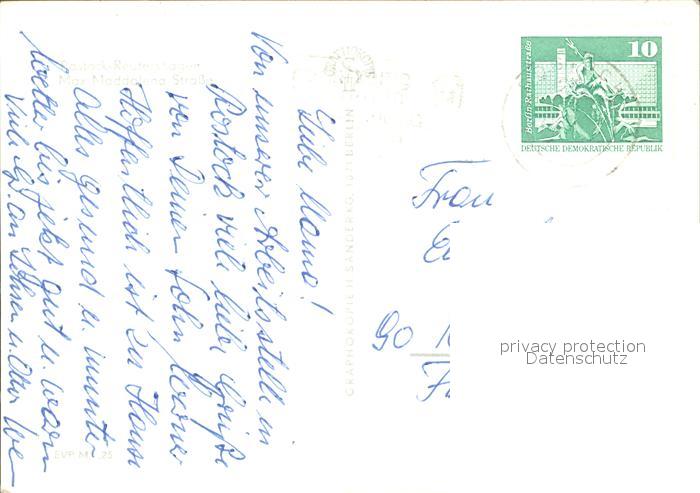 Rostock-Reutershagen
Max Maddalena Straße
Liebe Mama!
Von unserer Arbeitsstelle in
Rostock viele liebe Grüße
von Deinem Sohn Werner
Hoffentlich ist zu Hause
alles gesund u. munter
Wetter bis jetzt gut u. warm
Viele G. an
EVP M 0,25
GRAPHOKOPIE H. SANDER KG, 1071 BERLIN
10
Berlin, Rathausstraße
DEUTSCHE DEMOKRATISCHE REPUBLIK
Frau
90
privacy protection
Datenschutz